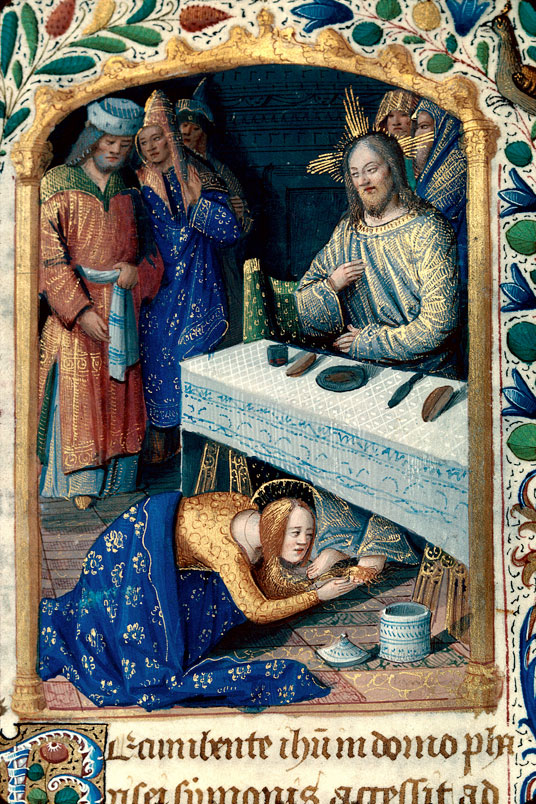 Recumbente ihū in domo pha
risei symonis accessit ad